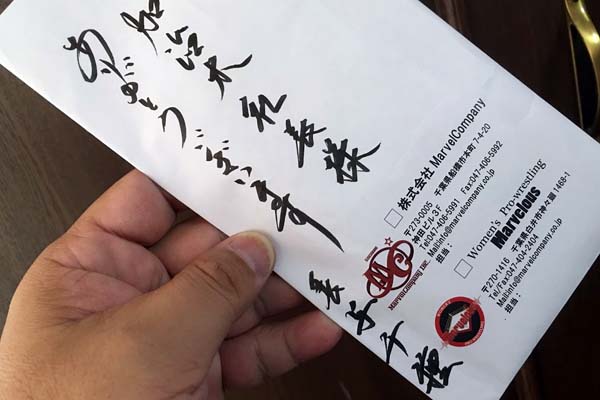 加治木代表様
ありがとうございます
長与千種
株式会社 MarvelCompany
〒273-0005 千葉県船橋市本町7-4-20
神田ビル3F
Tel:047-406-5991 Fax:047-406-5992
Mail:info@marvelcompany.co.jp
担当：
MC
Women's Pro-wrestling
Marvelous
〒270-1416 千葉県白井市神々廻1468-1
Tel/Fax:047-404-2404
Mail:info@marvelcompany.co.jp
担当：